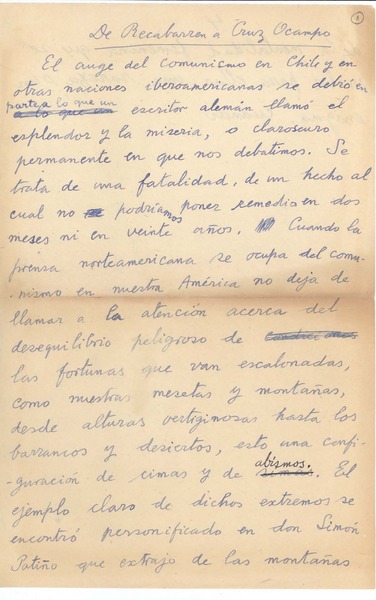 1
De Recabarren a Cruz Ocampo
El auge del comunismo en Chile y en
otras naciones iberoamericanas se debió en
parte a lo que un escritor alemán llamó el
esplendor y la miseria, o claroscuro
permanente en que nos debatimos. Se
trata de una fatalidad, de un hecho al
cual no podríamos poner remedio en dos
meses ni en veinte años. Cuando la
prensa norteamericana se ocupa del comu-
-nismo en nuestra América no deja de
llamar a la atención acerca del
desequilibrio peligroso de
las fortunas que van escalonadas,
como nuestras mesetas y montañas,
desde alturas vertiginosas hasta los
barrancos y desiertos, esto una confi-
-guración de cimas y de abismos. El
ejemplo claro de dichos extremos se
encontró personificado en don Simón
Patiño que extrajo de las montañas